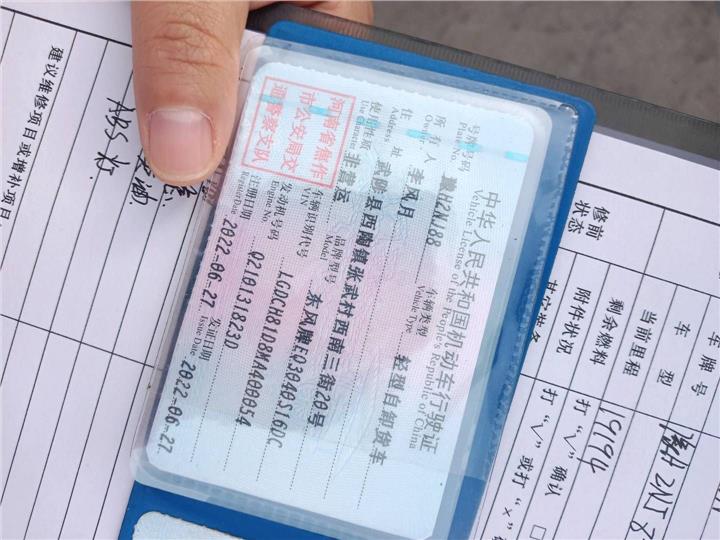 中华人民共和国机动车行驶证
Vehicle License of the People's Republic of China
号牌号码 豫H2N188 车辆类型 轻型自卸货车
Plate No. Vehicle Type
所有人 李风月
Owner
住址 武陟县西陶镇张武村西南三街20号
Address
使用性质 非营运 品牌型号 东风牌EQ3040S16DC
Use Character Model
河南省焦作
市公安局交
通警察支队
车辆识别代号 LGDCH81D8MA400054
VIN
发动机号码 Q210131823D
Engine No.
注册日期 2022-06-27 发证日期 2022-06-27
Register Date Issue Date
建议维修项目或增补项目
ABS灯
修前
状态
车牌号
车型
当前里程 19194
剩余燃料 打“√”确认
附件状况 打“√”或打“×”